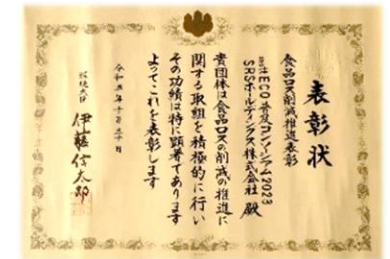 表彰状
食品ロス削減推進表彰
ECO普及コンソーシアム2023
SRSホールディングス株式会社 殿
貴団体は食品ロスの削減の推進に
関する取組を積極的に行い
その功績は特に顕著であります
よってこれを表彰します
令和五年十月三十日
環境大臣 伊藤信太郎